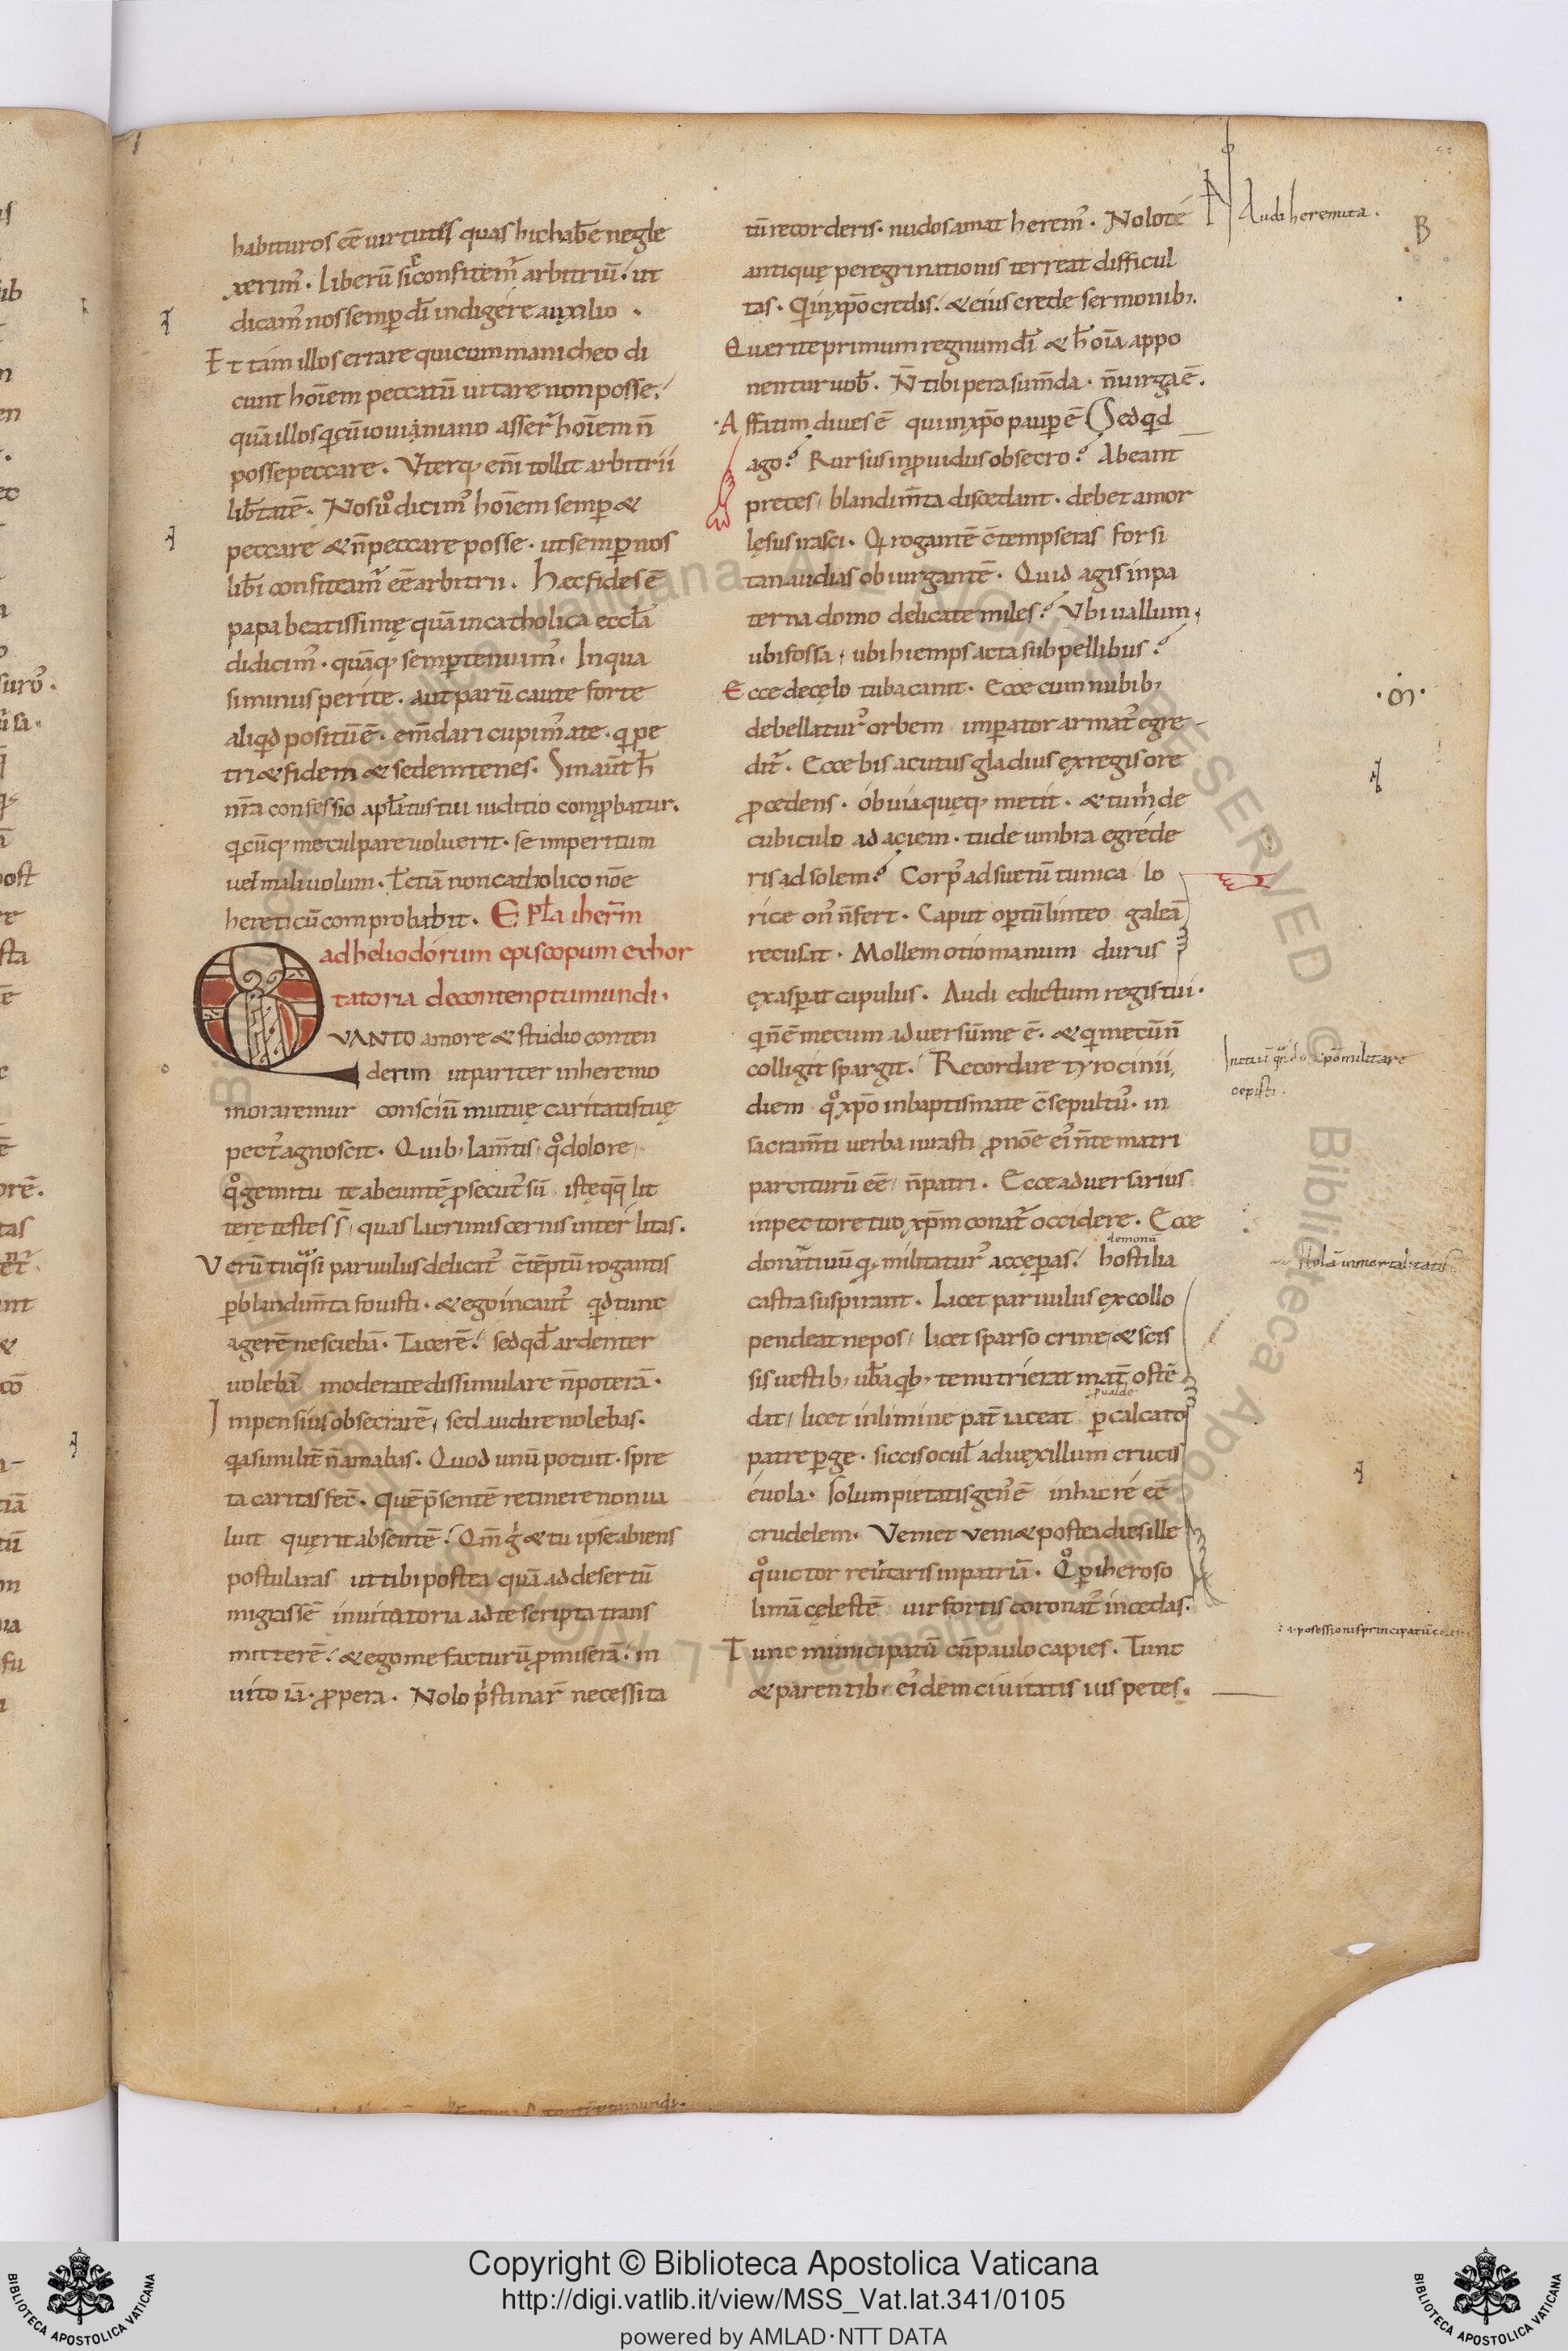 habituros eē uirtutes quas hic hab̄e negle
xerim᾽. Liberū sic confitem᾽ arbitriū. ut
dicam᾽ nos semꝑ dī indigere auxilio.
Et tam illos errare qui cum manicheo di
cunt hoīem peccatū uitare non posse.
quā illos qͥ cū iouiniano asser᾽ hoīem n̄
posse peccare. Vterq; eni᷑ tollit arbitrii
lib̄tatē. Nos uͦ dicim᾽ hoīem semꝑ &
peccare & n̄ peccare posse. ut semꝑ nos
lib̄i confiteam᾽ eē arbitrii. Hec fides ē
papa beatissimę quā in catholica eccla̅
didicim᾽. quāq; semꝑ tenuim᾽. In qua
si minus perite. aut parū caute forte
aliqͥd positū ē. em̄dari cupim᾽ a te. qͥ pe
tri & fidem & sedem tenes. Sin aūt h̄
nr̄a confessio apl̄atus tui iuditio comꝓbatur.
qͥcūq; me culpare uoluerit. se imperitum
uel maliuolum. ł etiā non catholico nōe
hereticū comprobabit. Epl̄a iherm̄
ad heliodorum episcopum exhor
tatoria de contemptu mundi.
QVANTO amore & studio conten
derim ut pariter in heremo
moraremur consciū mutuę caritatis tuę
pect᾽ agnoscit. Quib; lam̄tis. qͦ dolore
qͦ gemitu te abeuntē ꝓsecut᾽ sū istę qq̄ lit
terę testes s̄, quas lacrimis cernis interlitas.
Verū tu qͣsi paruulus delicat᾽ c̄tēptū rogantis
ꝑ blandim̄ta fouisti. & ego incaut᾽ qͥd tunc
agerē nesciebā. Tacerē? sed qd̄ ardenter
uolebā moderate dissimulare n̄ poterā.
Impensius obsecrarē, sed audire nolebas.
qͥa similit̄ n̄ amabas. Quod unū potuit. spre
ta caritas fec̄. Quē p̄sentē retinere non ua
luit querit absentē. Qm̄ gͥ & tu ipse abiens
postularas ut tibi postea quā ad desertū
migrassē inuitatoria ad te scripta trans
mitterē. & ego me facturū ꝓmiserā. in
uito iā. ꝓpera. Nolo pͥstinar᷑ necessita
tū recorderis. nudos amat herem᾽. Nolo te
antiquę peregrinationis terreat difficul
tas. Qͥ in xp̄o credis. & eius crede sermonib;.
Querite primum regnum dī & h̄ oīa appo
nentur uob̄. N̄ tibi pera sum̄da. n̄ uirga ē.
Affatim diues ē qui in xp̄o pauꝑ ē Sed qͥd
ago? Rursus inꝓuidus obsecro? Abeant
preces, blandim̄ta discedant. debet amor
lęsus irasci. Qͥ rogantē c̄tempseras forsi
tan audias obiurgantē. Quid agis in pa
terna domo delicate miles? Vbi uallum,
ubi fossa, ubi hiemps acta sub pellibus?
Ecce de cęlo tuba canit. Ecce cum nubib;
debellatur᾽ orbem imꝑator armat᾽ egre
dit᷑. Ecce bis acutus gladius ex regis ore
ꝓcedens. obuia quęq; metit. & tu m̓ de
cubiculo ad aciem. tu de umbra egrede
ris ad solem? Corp᾽ adsuetū tunica lo
rice on᾽ n̄ fert. Caput oꝑtū linteo galeā
recusat. Mollem otio manum durus
exasꝑat capulus. Audi edictum regis tui.
qͥ n̄ ē mecum aduersū me ē. & qͥ mecū n̄
colligit spargit. Recordare tyrocinii
diem qͦ xp̄o in baptismate c̄sepult᾽. in
sacram̄ti uerba iurasti ꝓ nōe ei᾽ n̄ te matri
parciturū eē, n̄ patri. Ecce aduersarius
in pectore tuo xp̄m conat᷑ occidere. Ecce
demonū
donatiuū qͦ militatur᾽ acceꝑas. hostilia
castra suspirant. Licet paruulus ex collo
pendeat nepos, licet sparso crine & scis
sis uestib; ub̄a qͥb; te nutrierat mat̄ ostē
dat, licet in limine pat̄ iaceat ꝑ calcato
patre ꝑge. siccis ocul̄ ad uexillum crucis
euola. Solum pietatis gen᾽ ē in hac re eē
crudelem. Veniet ueniet postea dies ille
qͦ uictor reu̓taris in patriā. Qͦ ꝑ iheroso
limā cęlestē uir fortis coronat᾽ incedas.
Tunc municipatū cū paulo capies. Tunc
& parentib; ei᾽dem ciuitatis ius petes.
Audi heremita.
B
cepisti.
Stolā inmortalitatis
Copyright © Biblioteca Apostolica Vaticana
http://digi.vatlib.it/view/MSS_Vat.lat.341/0105
powered by AMLAD·NTT DATA
BIBLIOTECA APOSTOLICA VATICANA
BIBLIOTECA APOSTOLICA VATICANA